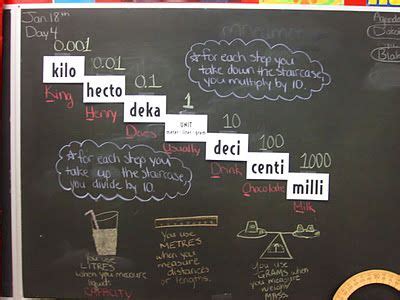 Jan. 18th
Day 4
0.001
kilo
King
0.01
hecto
Henry
0.1
deka
Does
1
UNIT
meter · liter · gram
Usually
10
deci
Drink
100
centi
Chocolate
1000
milli
Milk
for each step you
take down the staircase,
you multiply by 10.
for each step you
take up the staircase
you divide by 10.
You use
LITRES
when you measure
liquids
CAPACITY
You use
METRES
when you
measure
distances
or lengths.
You use
GRAMS when
you measure
weight
MASS
Agenda